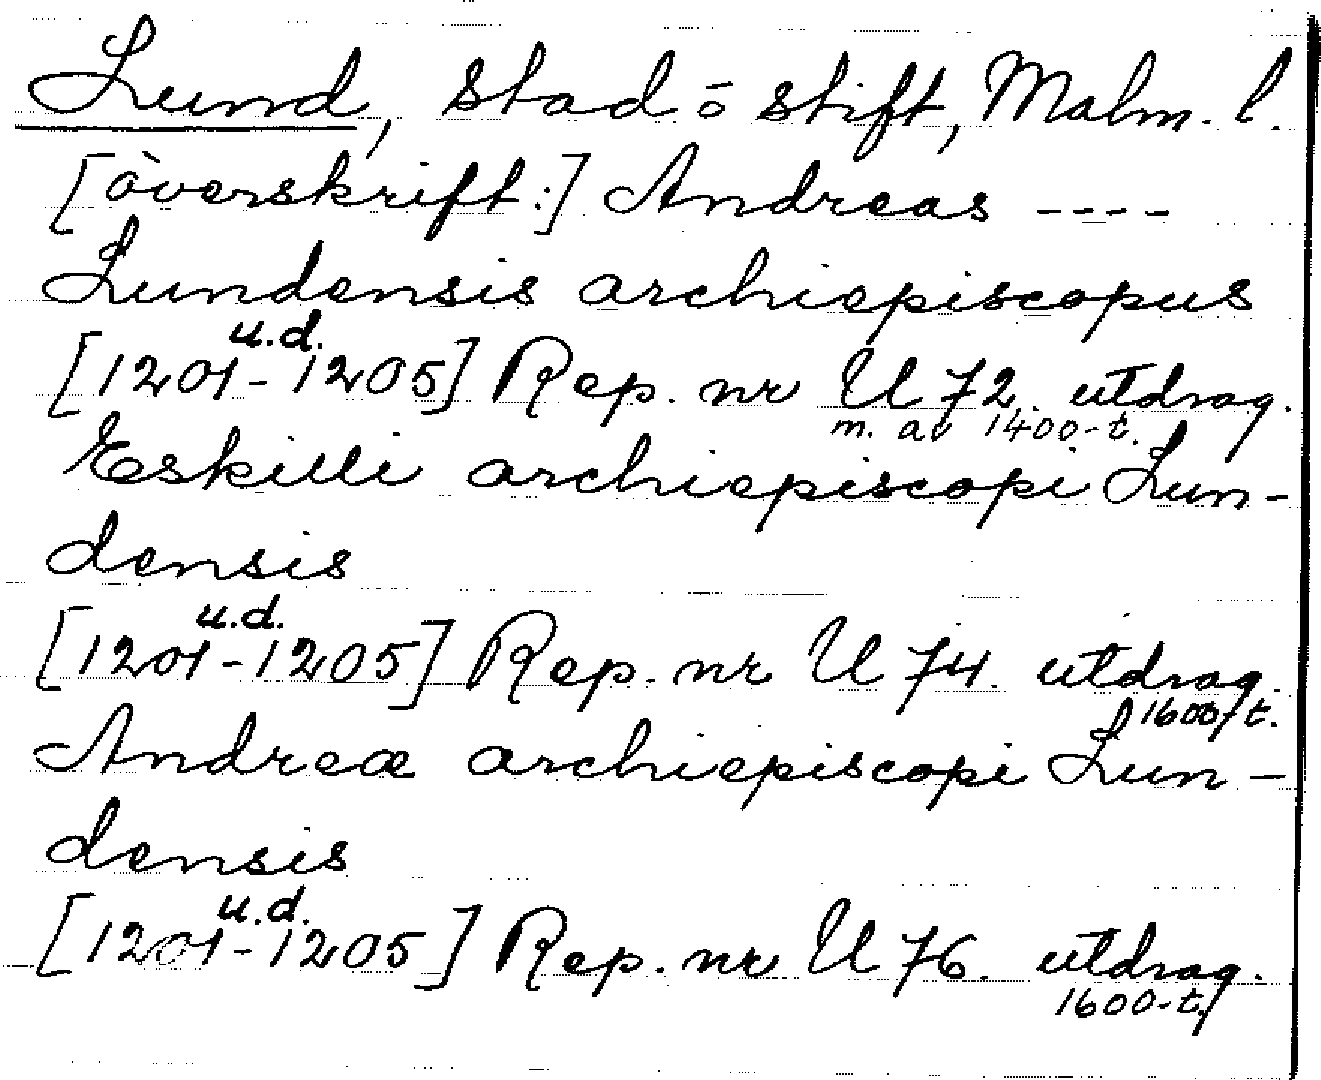 Lund, stad o stift, Malm. l.
[överskrift:] Andreas ----
Lundensis archiepiscopus
u.d.
[1201-1205] Rep. nr U 72. utdrag.
m. av 1400-t.
Eskilli archiepiscopi Lun-
densis
u.d.
[1201-1205] Rep. nr U 74. utdrag.
1600-t.
Andreæ archiepiscopi Lun-
densis
u.d.
[1201-1205] Rep. nr U 76. utdrag.
1600-t.